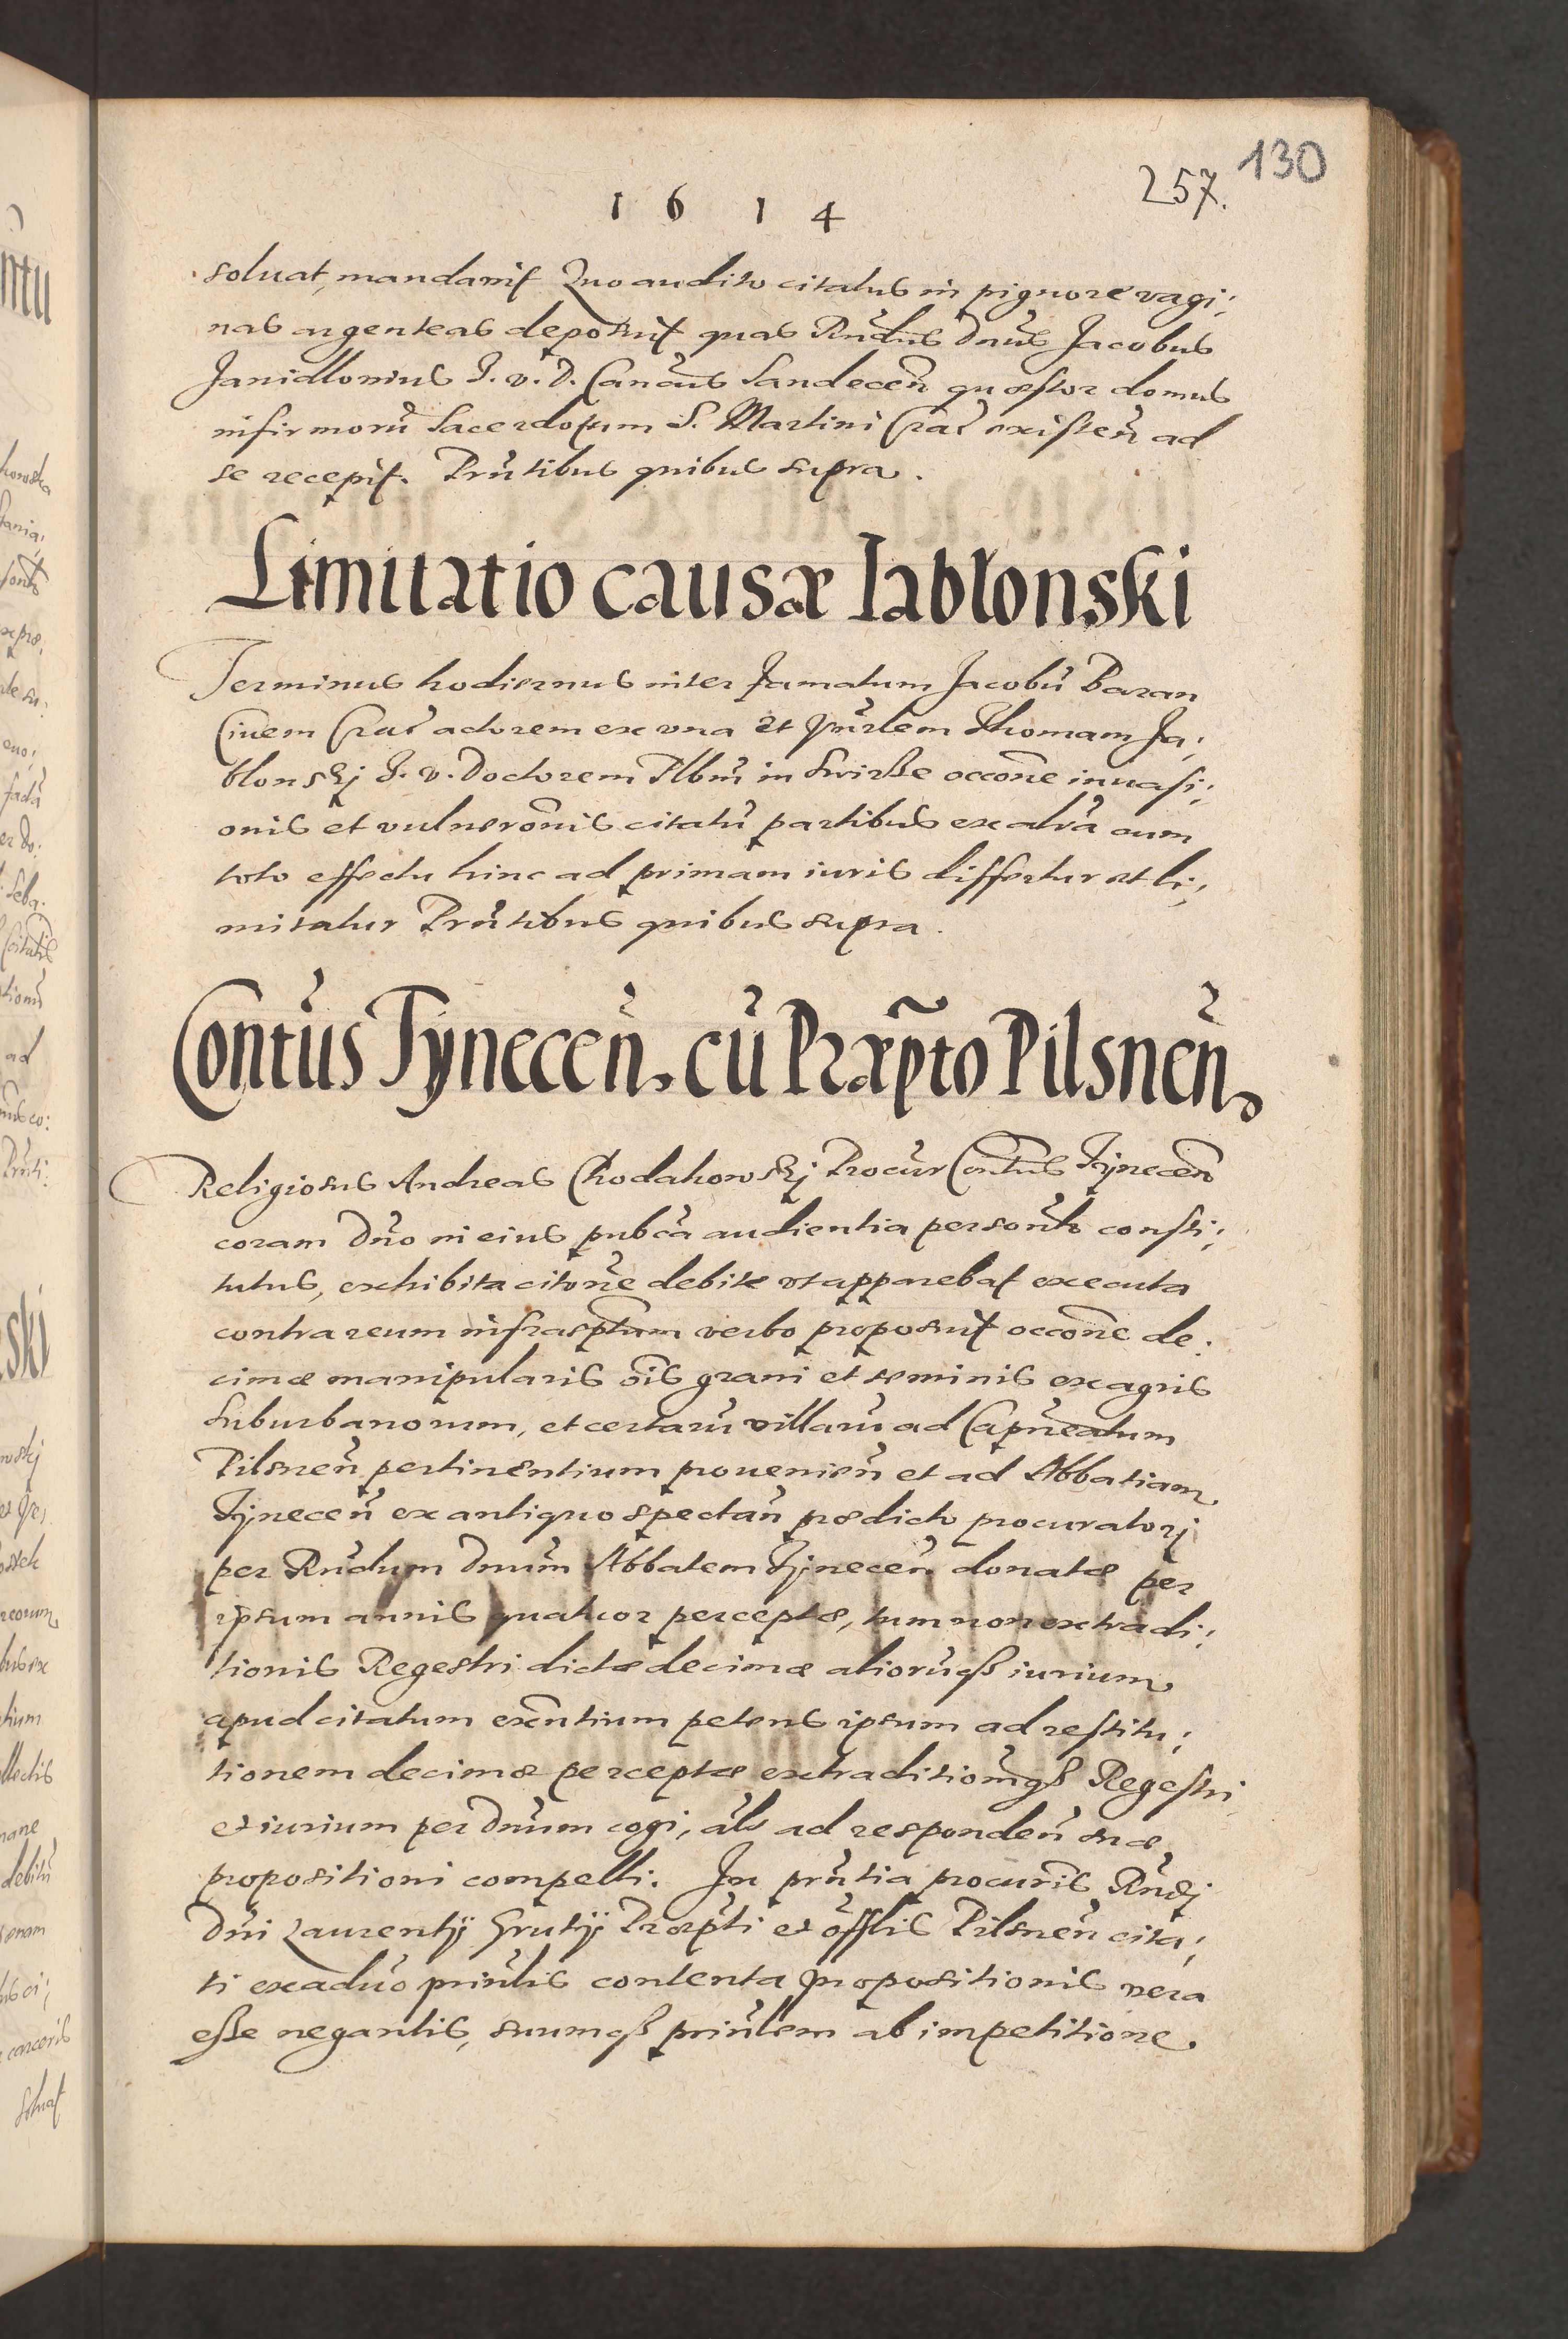 130
257.
1 6 1 4
soluat, mandauit Quo audito citatus in pignore vagi:
nas argenteas deposuit quas Rñdus Dñus Jacobus
Janidlouius J. v. D. Cancus Sandeceñ quæstor domus
infirmorũ Sacerdotum S. Martini Crac existeñ ad
se recepit. Prñtibus quibus supra.
Limitatio causæ Iablonski
Terminus hodiernus inter famatum Jacobũ Baran
Ciuem Crac actorem ex vna et Vnrlem Thomam Ja:
blonskj J. v. Doctorem Plbñ in occõne inuasi:
onis et vulnerõnis citatũ partibus ex altra cum
toto effectu hinc ad primam iuris differtur et li:
mitatur Prñtibus quibus supra.
Contũs Tyneceñ. cũ Præpto Pilsneñ.
Religiosus Andreas Chodakowskj Procur Contus Tyneceñ
coram Dño in eius pubca audientia personlr consti:
tutus, exhibita citõne debite vt apparebat executa
contra reum infrasptum verbo proposuit occõne de:
cimæ manipularis õis grani et seminis ex agris
Suburbanorum, et certarũ villarũ ad Capneatum
Pilsneñ pertinentium proueniéñ et ad Abbatiam
Tyneceñ ex antiquo spectañ prædicto procuratorj
per Rñdum Dnũm Abbatem Tyneceñ donatæ per
ipsum annis quatuor perceptæ, tum non extradi:
tionis Regestri dictæ decimæ aliorũqß iurium
apud citatum exñtium petens ipsum ad restitu:
tionem decimæ perceptæ extraditionẽqß Regestri
et iurium per Dnũm cogi, als ad respondeñ suæ
propositioni compelli. In prñtia procuris Rñdj
Dñi Laurentÿ Grutÿ Præpti et õfflis Pilsneñ cita:
ti ex aduo prinlis contenta propositionis vera
eße negantis, suumqß prinlem ab impetitione